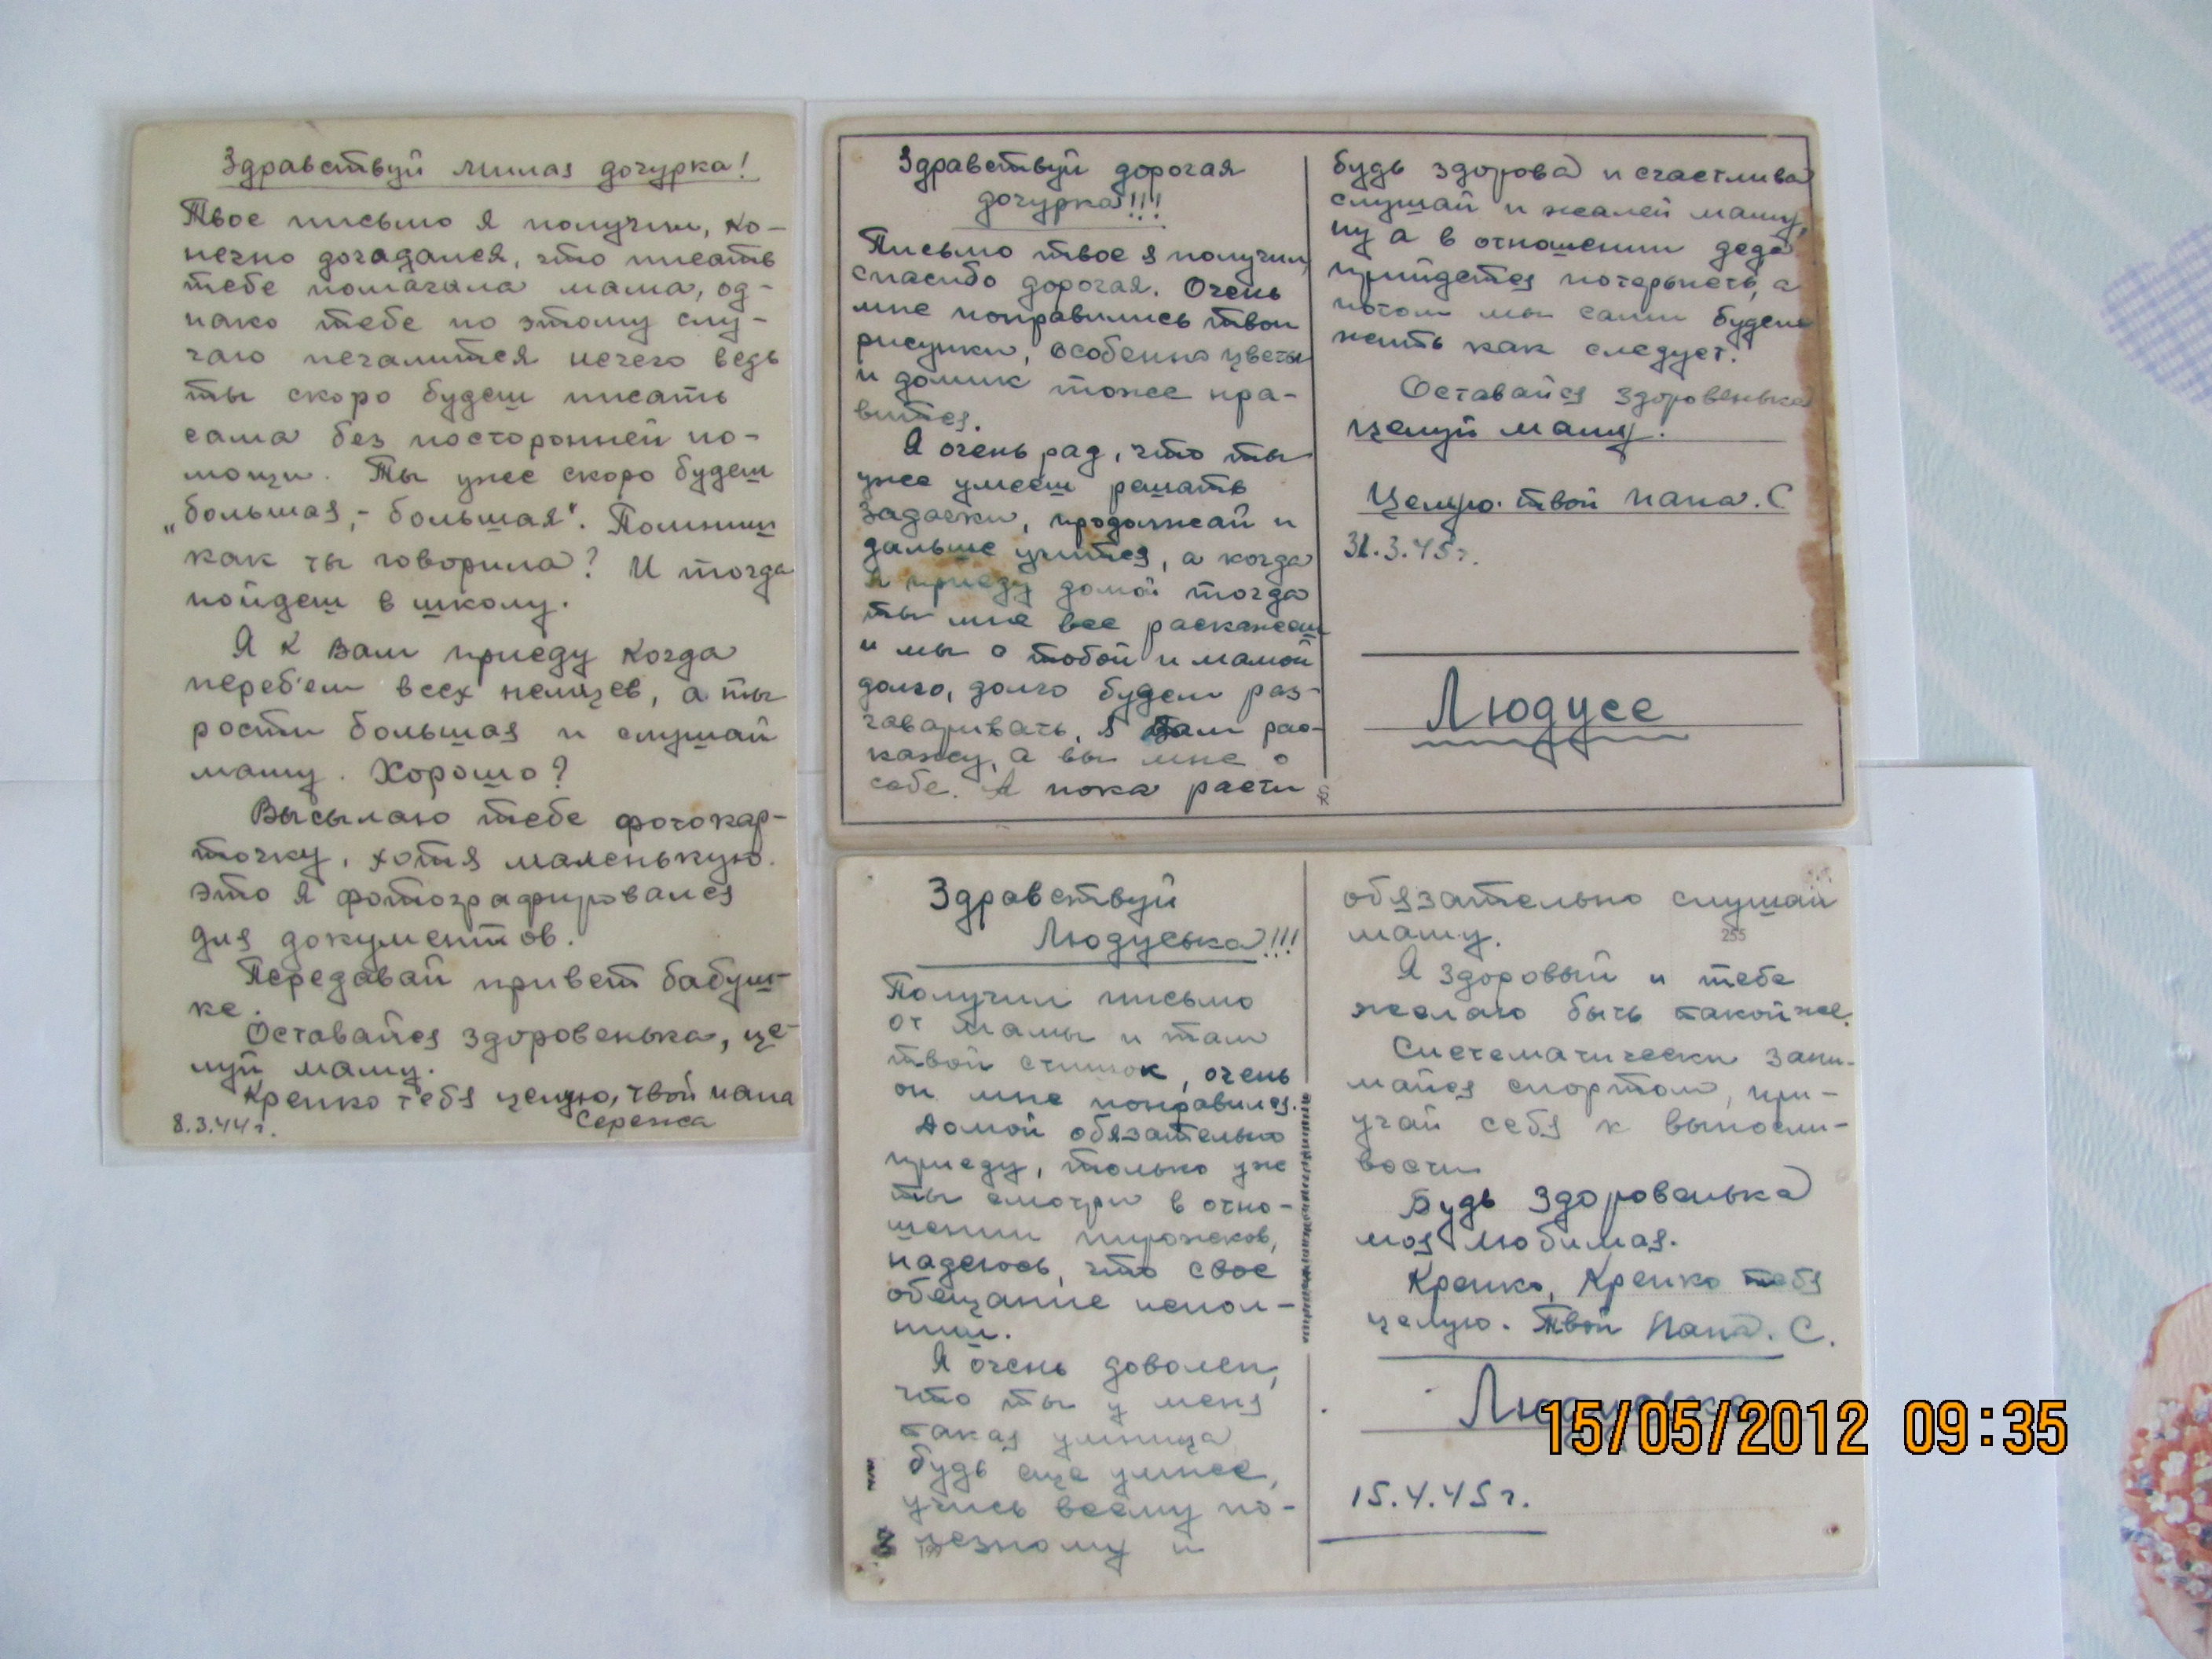 Здравствуй милая дочурка!
Твое письмо я получил, ко-
нечно догадался, что писать
тебе помагала мама, од-
нако тебе по этому слу-
чаю печалится нечего ведь
ты скоро будеш писать
сама без посторонней по-
мощи. Ты уже скоро будеш
„большая,- большая". Помниш
как ты говорила? И тогда
пойдеш в школу.
Я к вам приеду когда
переб'ем всех немцев, а ты
рости большая и слушай
маму. Хорошо?
Высылаю тебе фотокар-
точку, хотя маленькую.
это я фотографировался
для документов.
Передавай привет бабуш-
ке.
Оставайся здоровенька, це-
луй маму.
Крепко тебя целую, твой папа
8.3.44 г. Сережа
Здравствуй дорогая
дочурка!!!
Письмо твое я получил,
спасибо дорогая. Очень
мне понравились твои
рисунки, особенно цветы
и домик тоже нра-
вится.
Я очень рад, что ты
уже умееш решать
задачки, продолжай и
дальше учится, а когда
я приеду домой тогда
ты мне все раскажеш
и мы с тобой и мамой
долго, долго будем раз-
говаривать, я вам рас-
кажу, а вы мне о
себе. А пока расти
будь здорова и счастлива
слушай и жалей маму,
ну а в отношении деда
прийдется потерпеть, а
потом мы сами будем
жить как следует.
Оставайся здоровенька
целуй маму.
Целую. твой папа. С
31.3.45 г.
Людусе
Здравствуй
Людуська!!!
Получил письмо
от мамы и там
твой стишок, очень
он мне понравился.
Домой обязательно
приеду, только уж
ты смотри в отно-
шении пирожков,
надеюсь, что свое
обещание испол-
ниш.
Я очень доволен,
что ты у меня
такая умница
будь еще умнее,
учись всему по-
лезному и
обязательно слушай
маму.
255
Я здоровый и тебе
желаю быть такой же.
Систематически зани-
майся спортом, при-
учай себя к выносли-
вости
Будь здоровенька
моя любимая.
Крепко, Крепко тебя
целую. Твой Папа. С.
Людуська
15.4.45 г.
15/05/2012 09:35